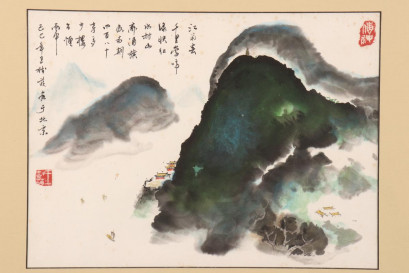 江南春
千里莺啼
绿映红
水村山
郭酒旗
风南朝
四百八十
寺多
少楼
台烟
雨中
己巳年於北京